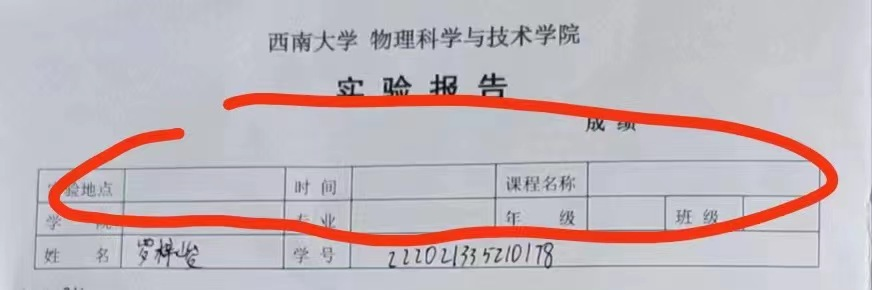 西南大学 物理科学与技术学院
实验报告
成绩
实验地点 时间 课程名称
学院 专业 年级 班级
姓名 罗梓 学号 222021335210178